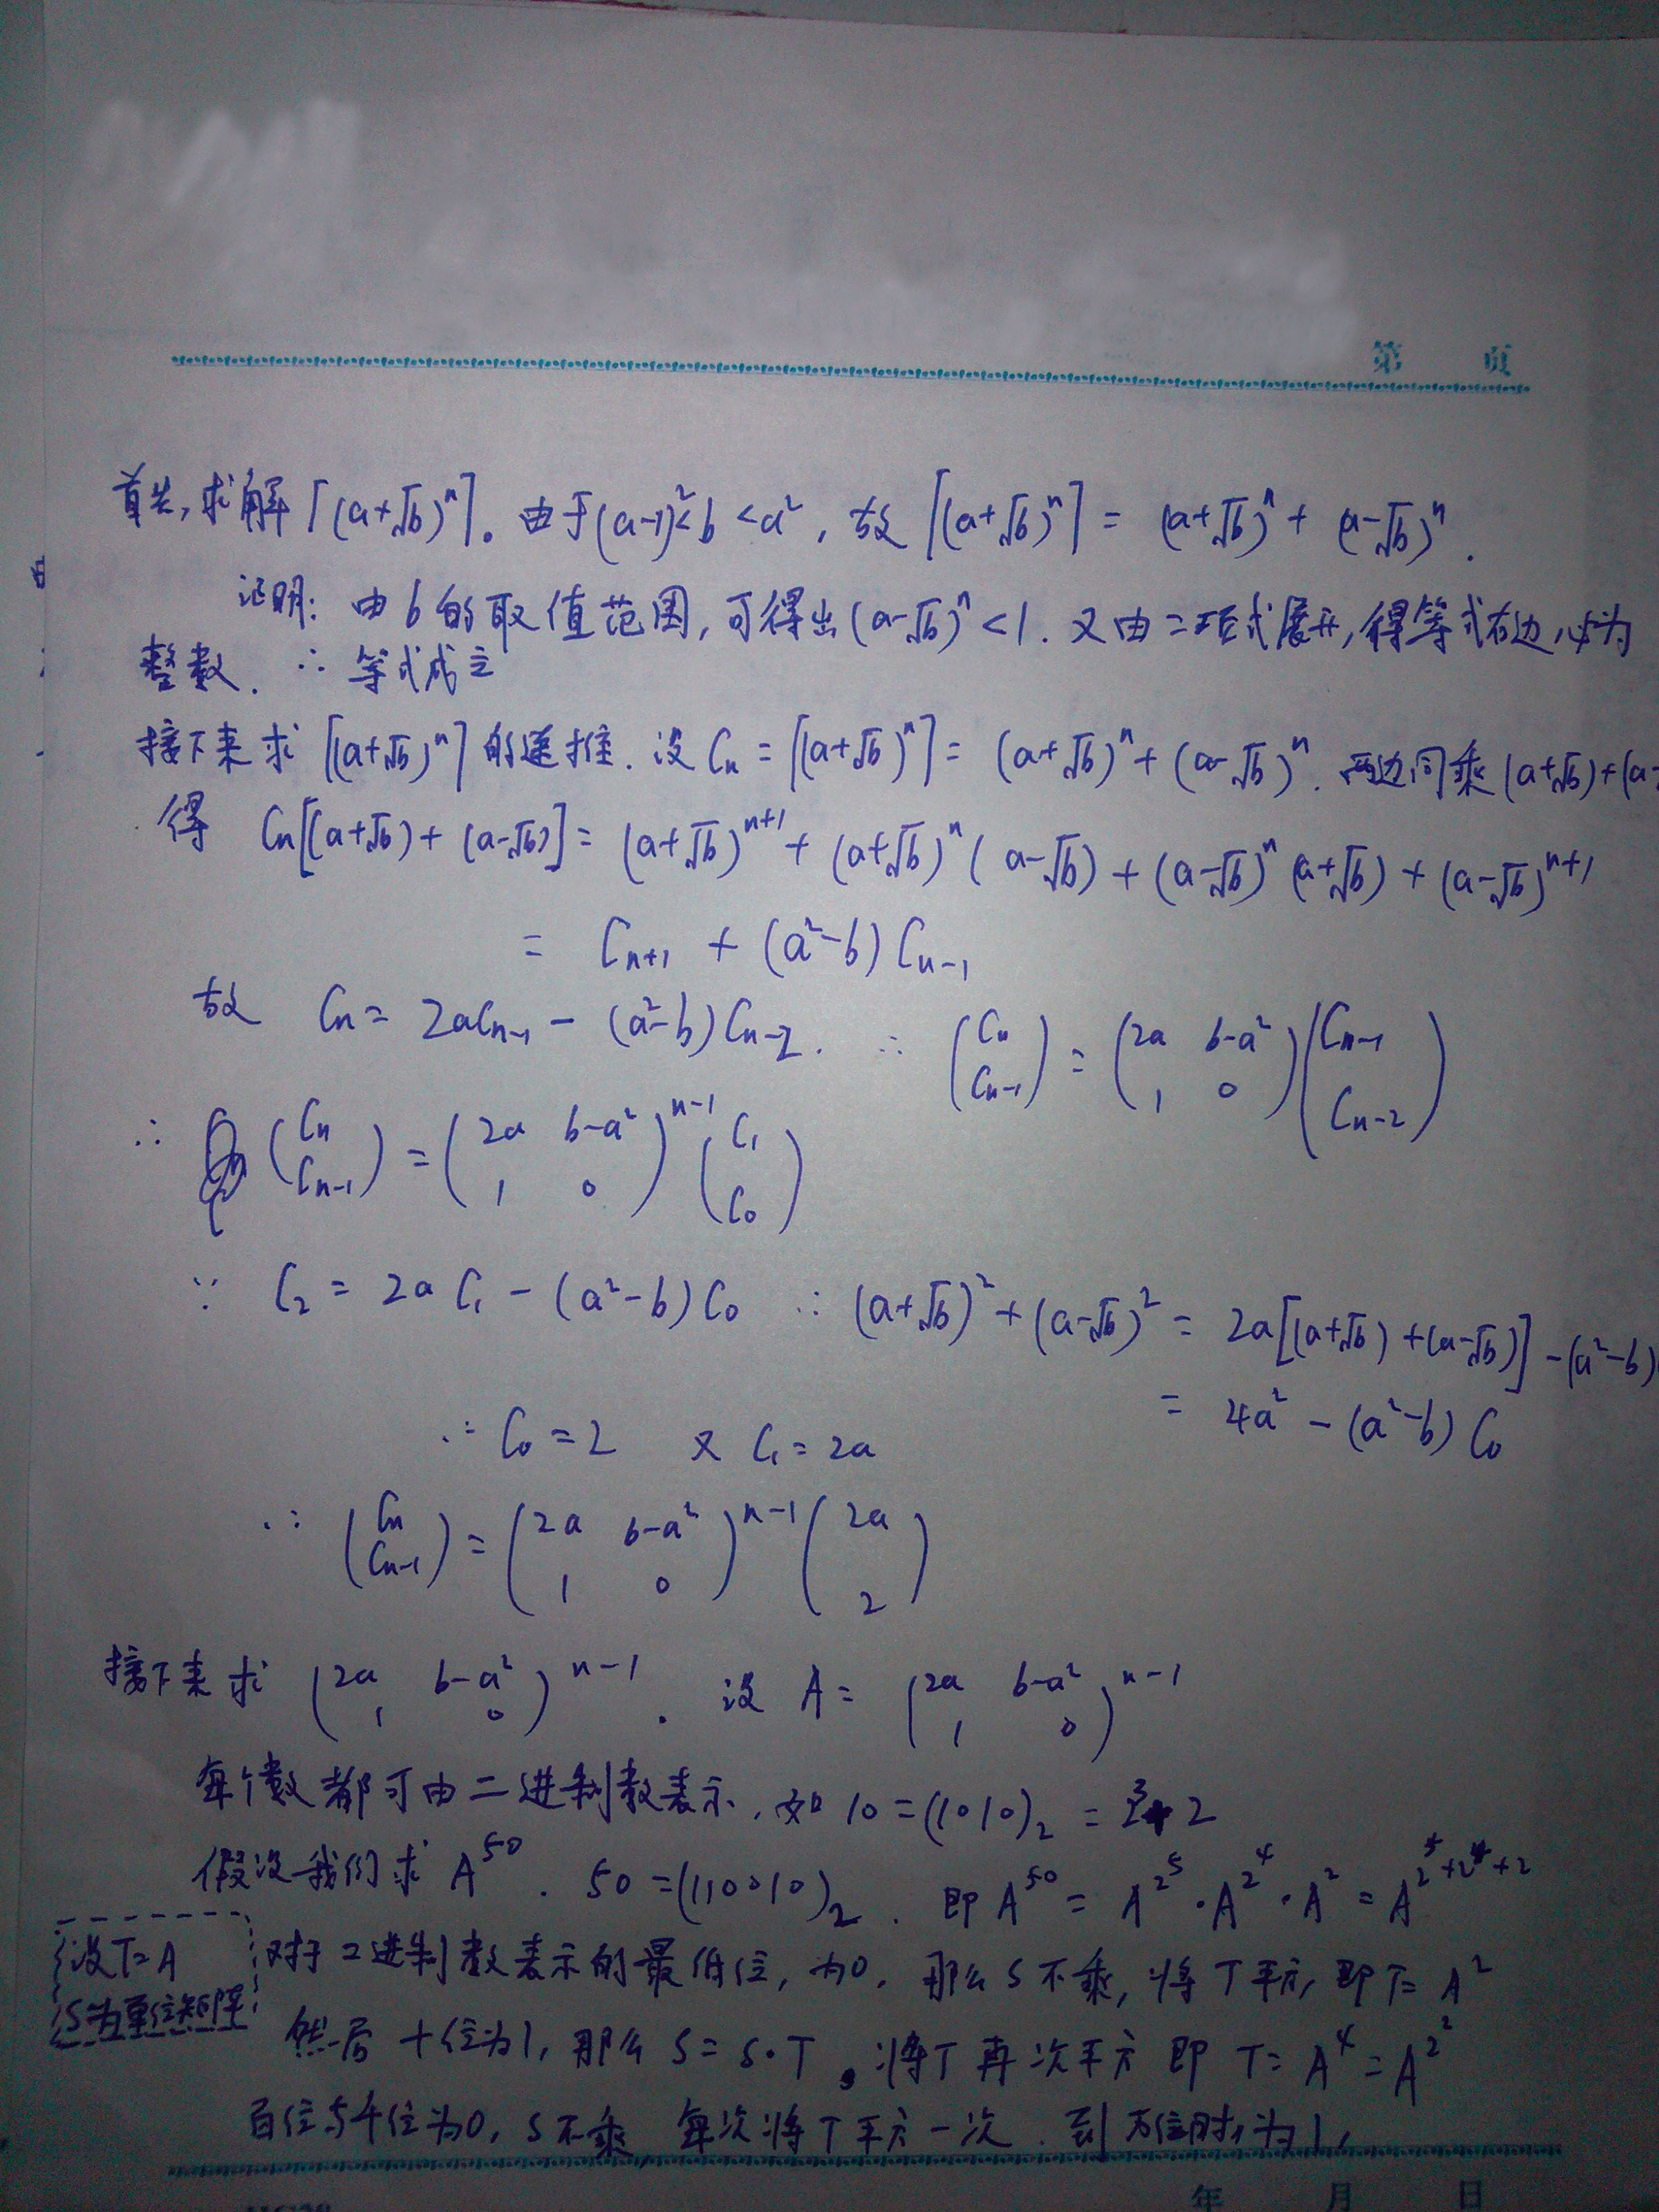 第 页
首先,求解⌈(a+√b)^n⌉。由于(a-1)²<b<a²,故⌈(a+√b)^n⌉=(a+√b)^n+(a-√b)^n.
证明:由b的取值范围,可得出(a-√b)^n<1.又由二项式展开,得等式右边必为
整数.∴等式成立
接下来求⌈(a+√b)^n⌉的递推.设Cn=⌈(a+√b)^n⌉=(a+√b)^n+(a-√b)^n.两边同乘(a+√b)+(a-
得 Cn[(a+√b)+(a-√b)]=(a+√b)^{n+1}+(a+√b)^n(a-√b)+(a-√b)^n(a+√b)+(a-√b)^{n+1}
= C_{n+1}+(a²-b)C_{n-1}
故 Cn=2aC_{n-1}-(a²-b)C_{n-2}. ∴ (Cn C_{n-1})=(2a b-a² 1 0)(C_{n-1} C_{n-2})
∴ (Cn C_{n-1})=(2a b-a² 1 0)^{n-1}(C₁ C₀)
∵ C₂=2aC₁-(a²-b)C₀ ∴(a+√b)²+(a-√b)²=2a[(a+√b)+(a-√b)]-(a²-b)
= 4a²-(a²-b)C₀
∴C₀=2 又C₁=2a
∴ (Cn C_{n-1})=(2a b-a² 1 0)^{n-1}(2a 2)
接下来求(2a b-a² 1 0)^{n-1}.设A=(2a b-a² 1 0)^{n-1}
每个数都可由二进制数表示,如10=(1010)₂=2³+2
假设我们求A^50.50=(110010)₂.即A^50=A^{2^5}·A^{2^4}·A^2=A^{2^5+2^4+2}
设T=A
S为单位矩阵
对于二进制数表示的最低位,为0,那么S不乘,将T平方,即T=A²
然后十位为1,那么S=S·T。将T再次平方即T=A⁴=A^{2^2}
百位与千位为0,S不乘,每次将T平方一次.到万位时,为1,
年 月 日